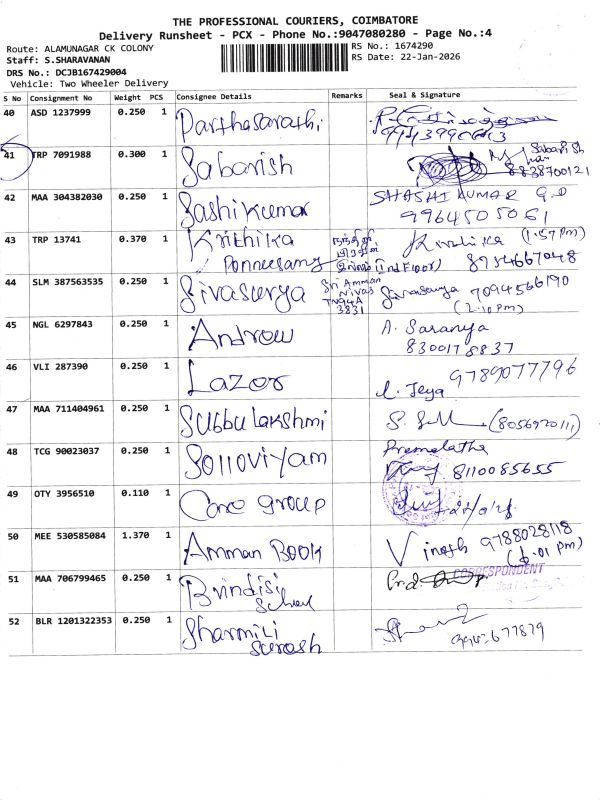 THE PROFESSIONAL COURIERS, COIMBATORE
Delivery Runsheet - PCX - Phone No.:9047080280 - Page No.:4
Route: ALAMUNAGAR CK COLONY
Staff: S.SHARAVANAN
DRS No.: DCJB167429004
Vehicle: Two Wheeler Delivery
RS No.: 1674290
RS Date: 22-Jan-2026
S No Consignment No Weight PCS Consignee Details Remarks Seal & Signature
40 ASD 1237999 0.250 1 Parthasarathi
41 TRP 7091988 0.300 1 Sabarish Sabarish
8838700121
42 MAA 304382030 0.250 1 Sashikumar SHASHI KUMAR G.D
9964505061
43 TRP 13741 0.370 1 Krithika Krithika (1:57 pm)
Ponnusamy (Ind Floor) 8754667048
44 SLM 387563535 0.250 1 Sivasurya Sri Amman Nivas TN94A 3831 Sivasurya 7094566190
(2:10 pm)
45 NGL 6297843 0.250 1 Androw A. Saranya
8300178837
46 VLI 287390 0.250 1 Lazor 9789077796
J. Jeya
47 MAA 711404961 0.250 1 Subbulakshmi (8056920111)
48 TCG 90023037 0.250 1 Solloviyam Premalatha
8110085655
49 OTY 3956510 0.110 1 Care group
50 MEE 530585084 1.370 1 Amman BOOK Vinoth 9788028118
51 MAA 706799465 0.250 1 Brindisi School CORRESPONDENT
52 BLR 1201322353 0.250 1 Sharmili
Suresh